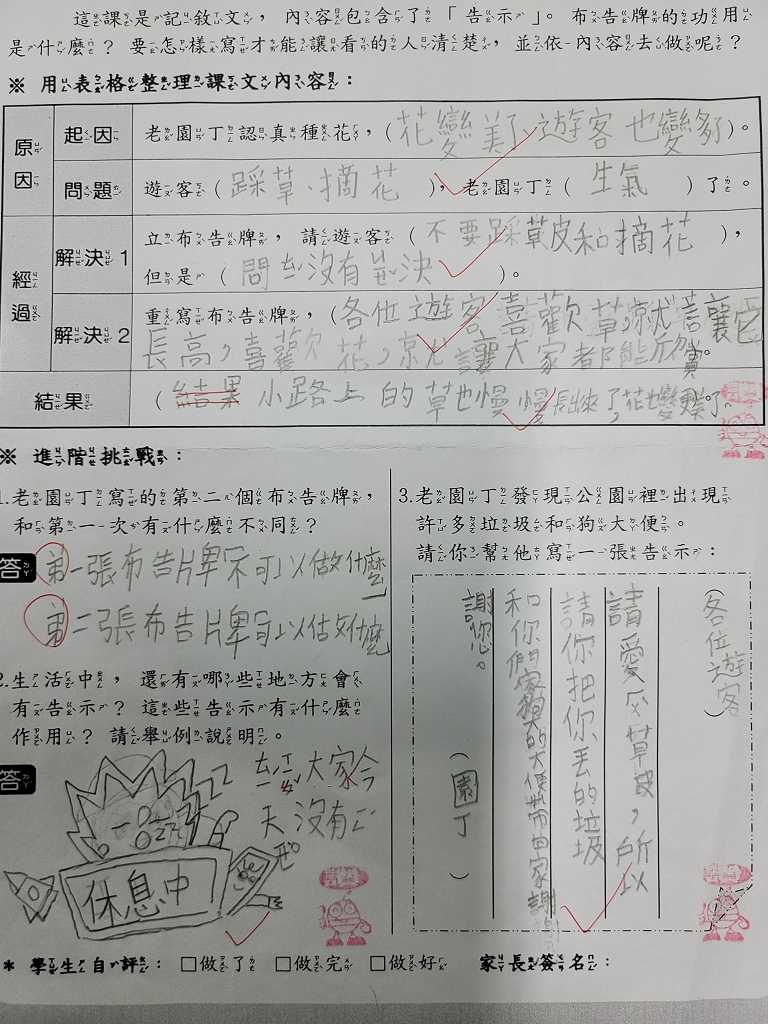 這課是記敘文，內容包含了「告示」。布告牌的功用
是什麼？要怎樣寫才能讓看的人清楚，並依內容去做呢？
※ 用表格整理課文內容：
原因
起因
老園丁認真種花，（花變美了、遊客也變多）。
問題
遊客（踩草、摘花），老園丁（生氣）了。
經過
解決1
立布告牌，請遊客（不要踩草皮和摘花），
但是（問ㄊㄧˊ沒有解決）。
解決2
重寫布告牌，（各位遊客喜歡草，就請讓它
長高，喜歡花，就讓大家都能欣賞。
結果
（結果小路上的草也慢慢長出來了，花也變美了。
※ 進階挑戰：
1.老園丁寫的第二個布告牌，
和第一次有什麼不同？
答
第一張布告牌寫不可以做什麼，
第二張布告牌寫可以做什麼
2.生活中，還有哪些地方會
有告示？這些告示有什麼
作用？請舉例說明。
答
大家今
天沒有
休息中
3.老園丁發現公園裡出現
許多垃圾和狗大便。
請你幫他寫一張告示：
（各位遊客）
請愛反草皮，所以
請你把你丟的垃圾
和你們家狗的大便帶回家謝
謝您。
（園丁）
* 學生自評：□做了 □做完 □做好 家長簽名：